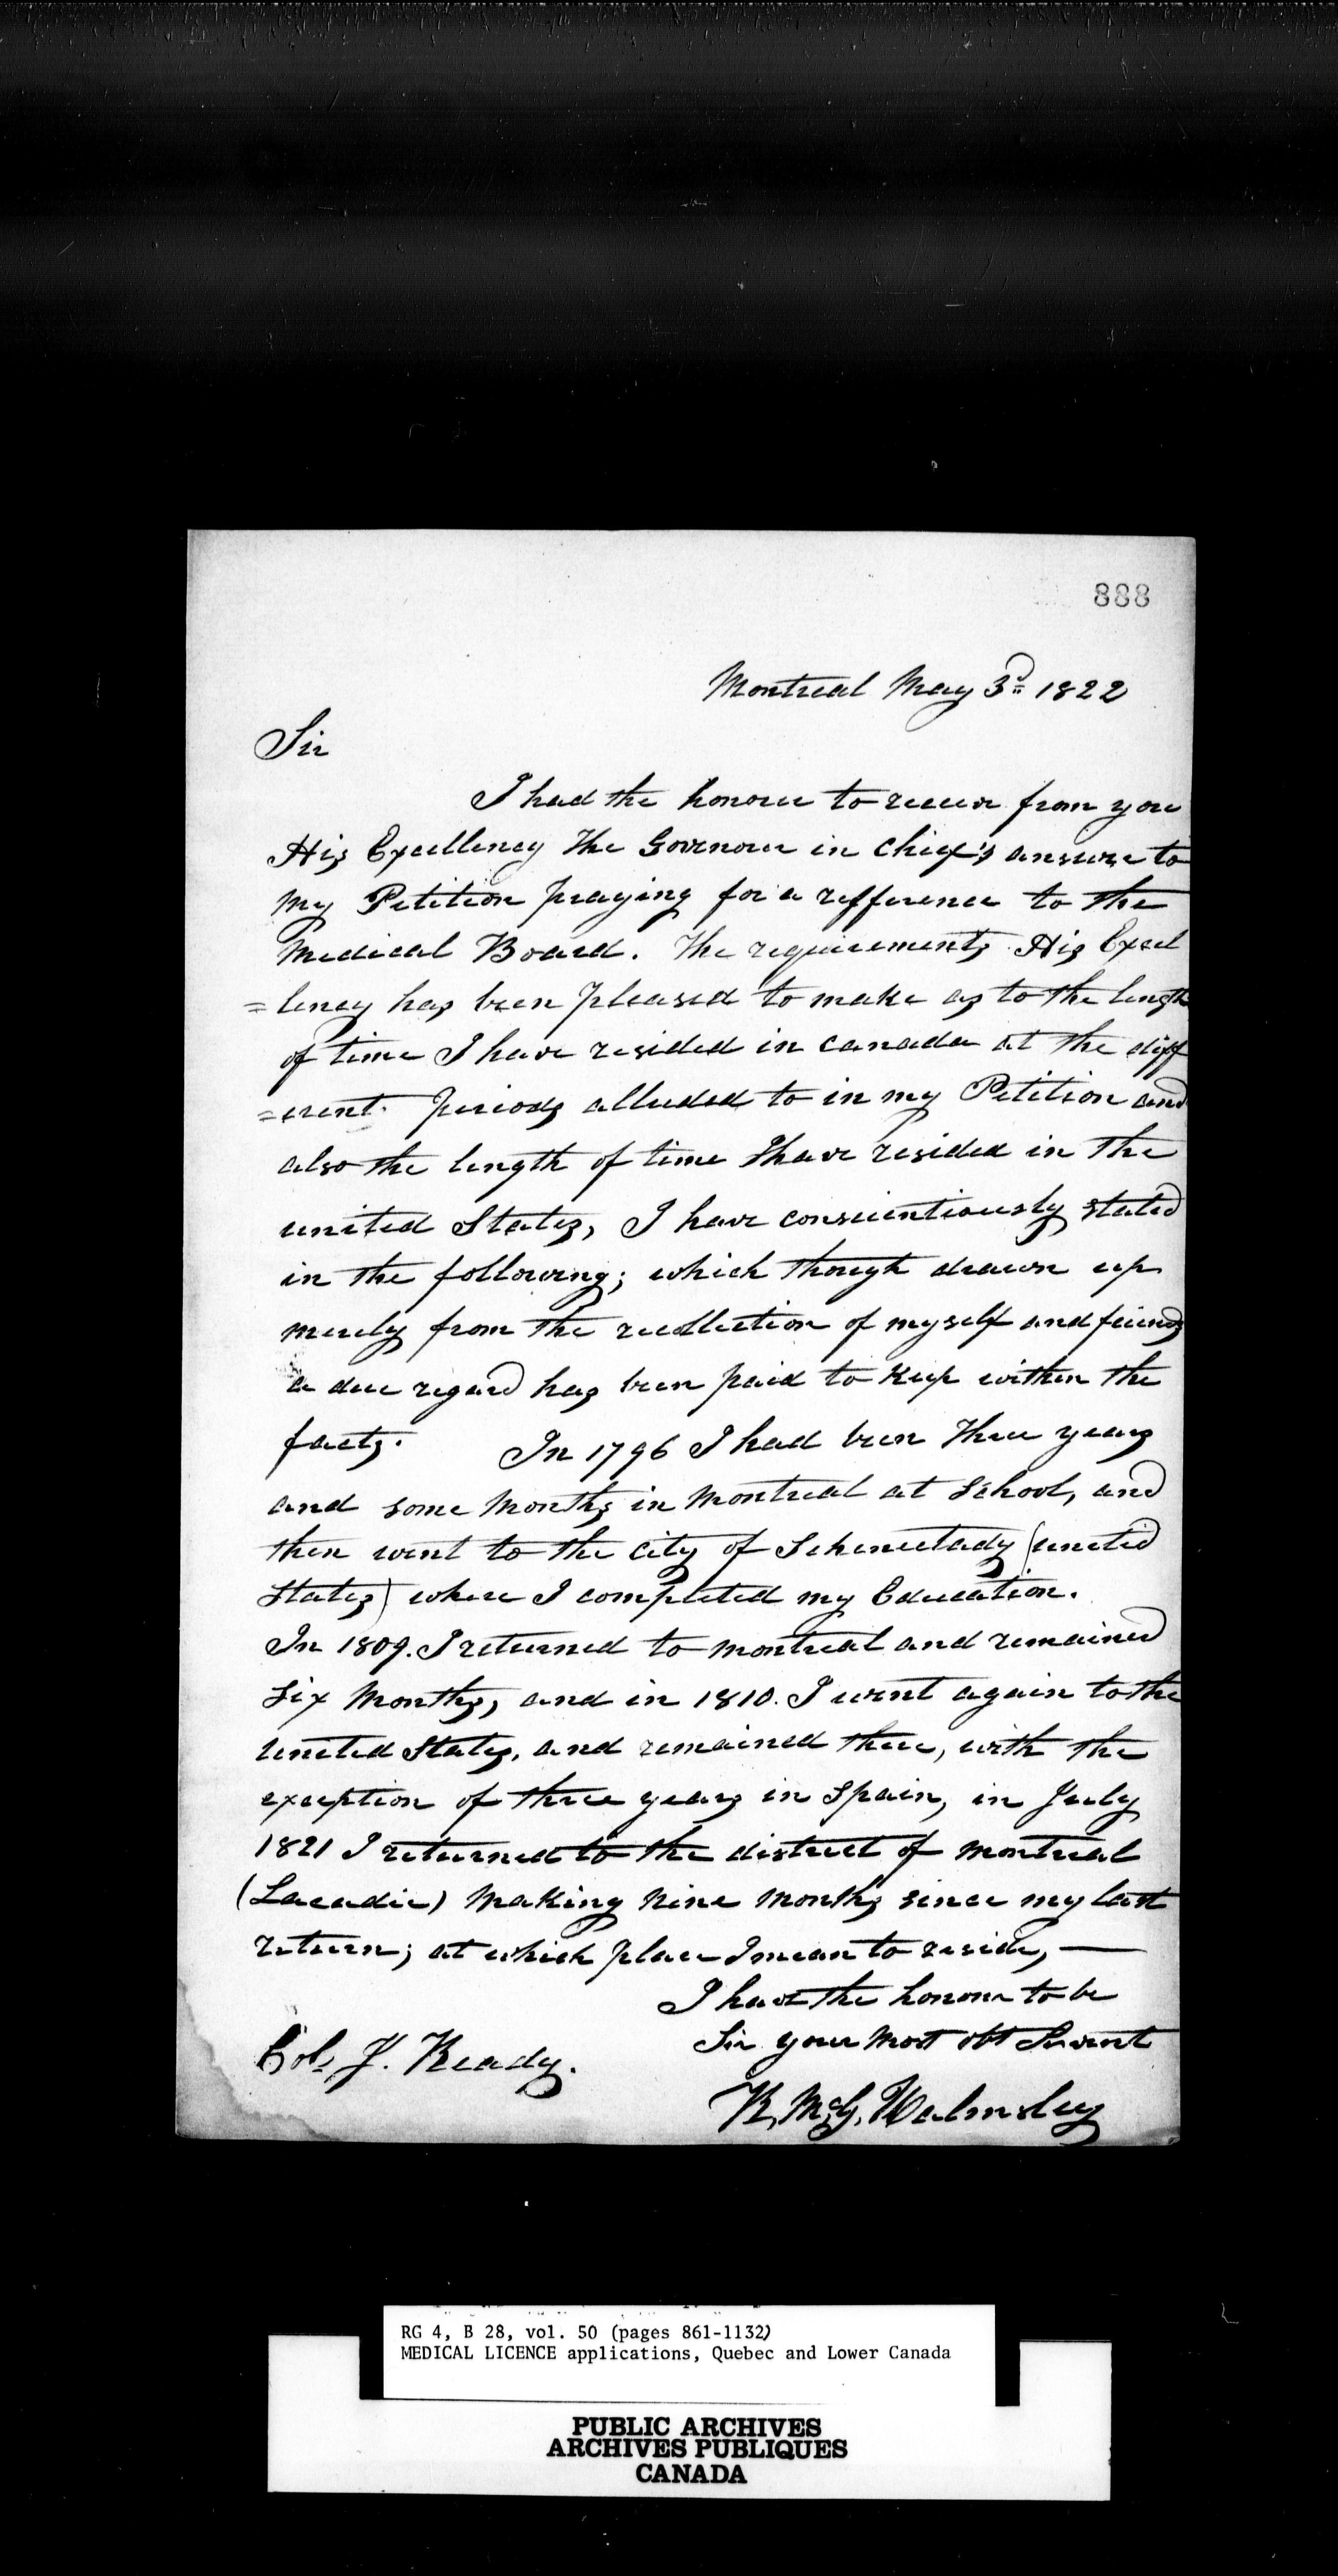 888
Montreal May 3d 1822
Sir
I had the honour to receive from you
His Excellency the Govenour in chief's answere to
my Petition praying for a refference to the
Medical Board. The requirements His Excel
=lency has been pleased to make as to the length
of time I have resided in canada at the diff
=erent periods alluded to in my Petition and
also the length of time I have resided in the
united States, I have conscientiously stated
in the following; which though drawn up
merely from the recollection of myself and friends
a due regard has been paid to keep within the
facts. In 1796 I had been three years
and some Months in Montreal at School, and
then went to the city of Schenectady (united
States) where I completed my Education.
In 1809. I returned to montreal and remained
Six Months, and in 1810. I went again to the
United States, and remained there, with the
exception of three years in Spain, in July
1821 I returned to the district of montreal
(Lacadie) Making Nine Months since my last
return; at which place I mean to reside, —
I have the honour to be
Sir your Most obt Servent
Col. J. Ready.
R. McG. Walmsley
RG 4, B 28, vol. 50 (pages 861-1132)
MEDICAL LICENCE applications, Quebec and Lower Canada
PUBLIC ARCHIVES
ARCHIVES PUBLIQUES
CANADA